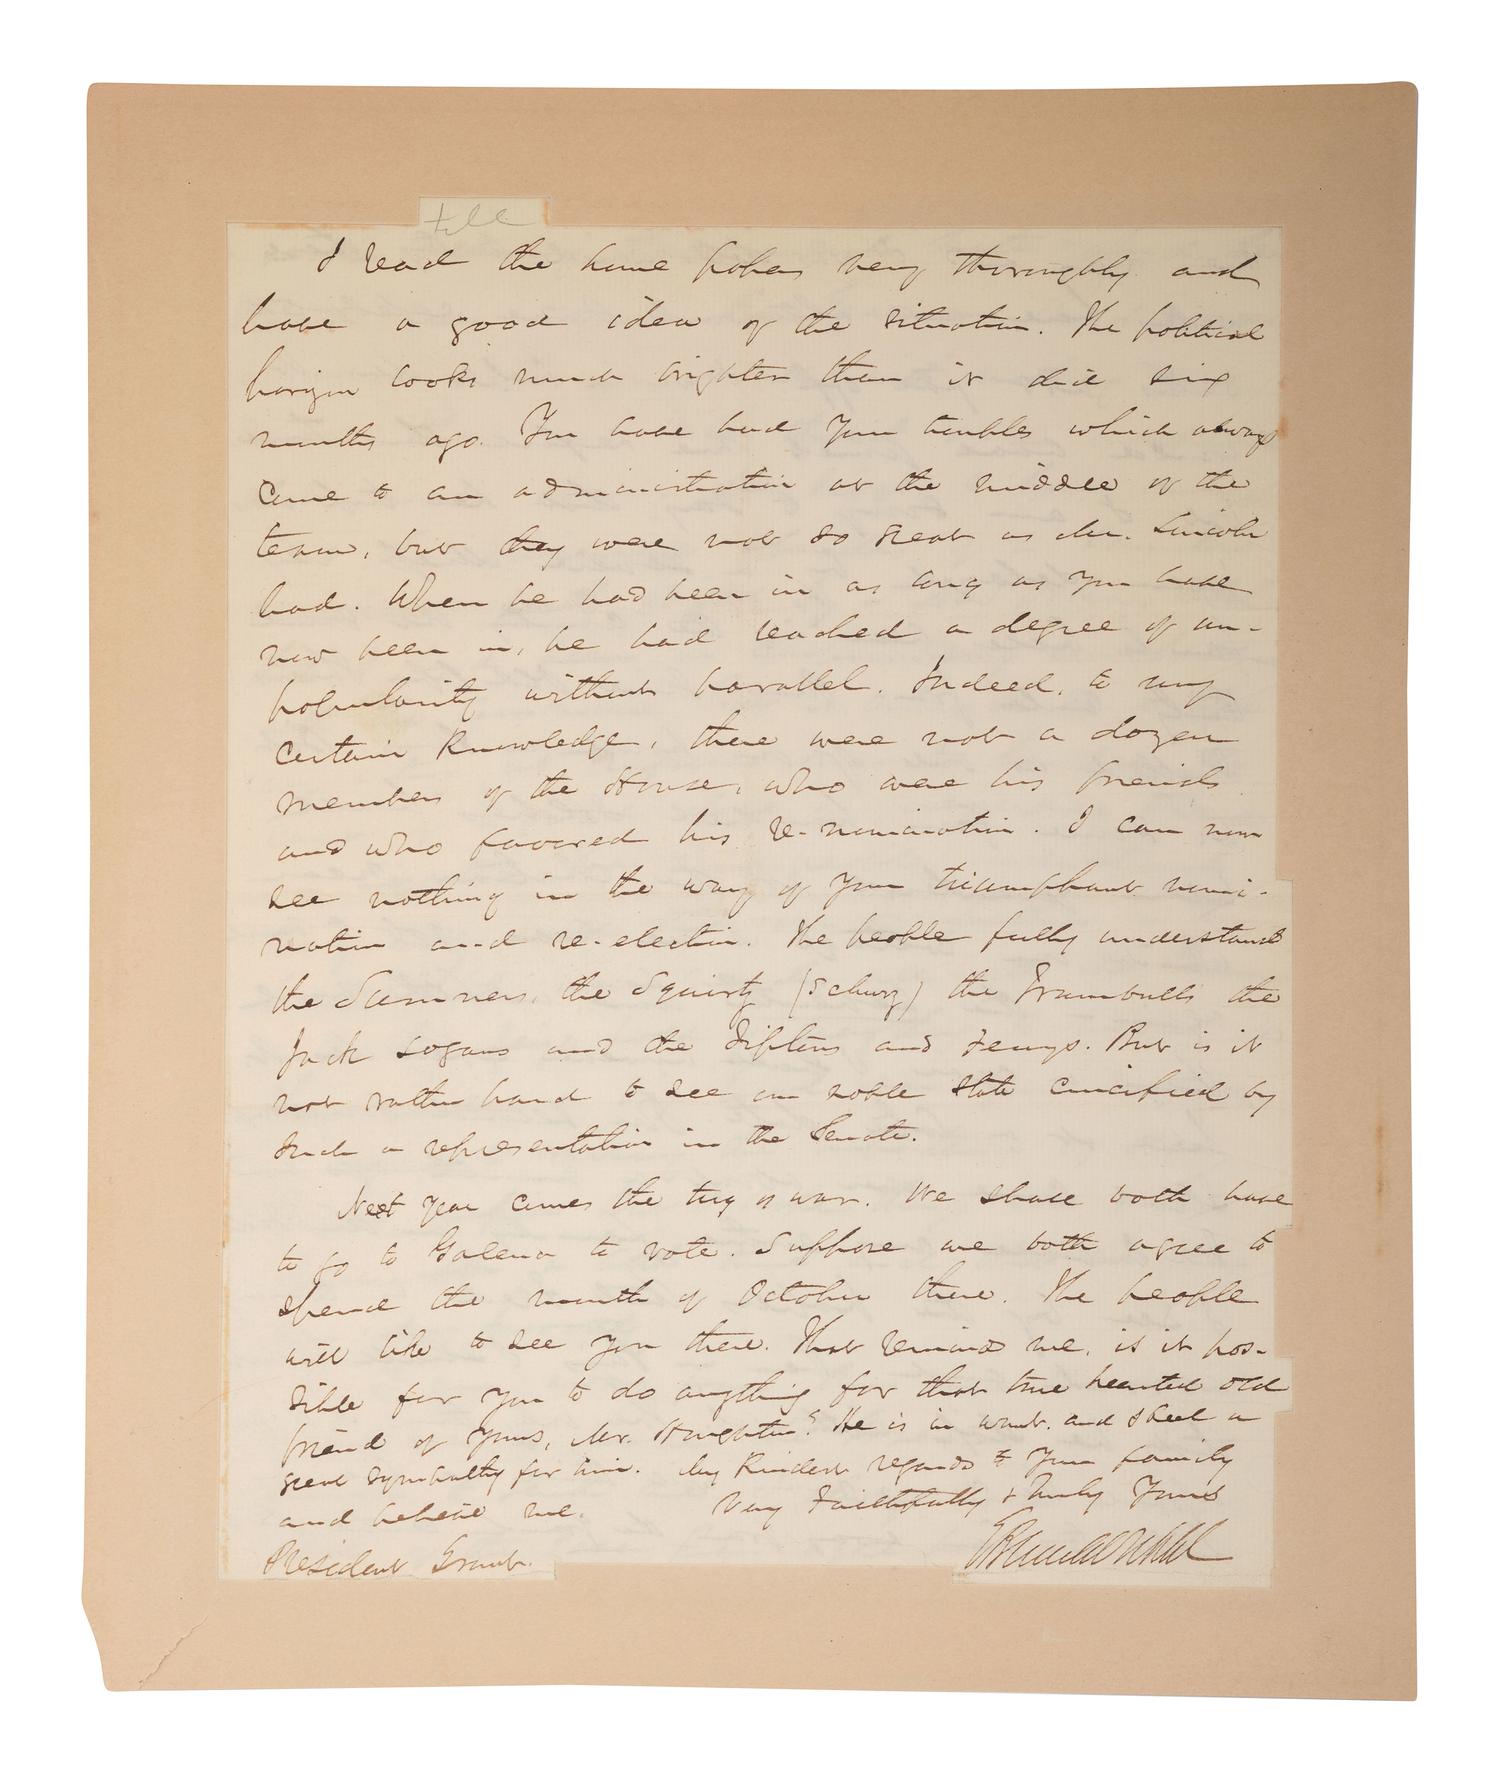 I read the home papers very thoroughly and
have a good idea of the situation. The political
horizon looks much brighter than it did six
months ago. You have had your troubles which always
come to an administration at the middle of the
term, but they were not so great as Mr. Lincoln
had. When he had been in as long as you have
now been in, he had reached a degree of un-
popularity without parallel. Indeed, to my
certain knowledge, there were not a dozen
members of the House, who were his friends
and who favored his re-nomination. I can now
see nothing in the way of your triumphant nomi-
nation and re-election. The people fully understand
the Sumners, the Squirtz (Schurz) the Trumbulls the
Jack Logans and the Tiptons and Fentons. But is it
not rather hard to see our noble State crucified by
such a representation in the Senate.
Next year comes the tug of war. We shall both have
to go to Galena to vote. Suppose we both agree to
spend the month of October there. The people
will like to see you there. That reminds me, is it pos-
sible for you to do anything for that true hearted old
friend of yours, Mr. Houghton? He is in want, and I feel a
great sympathy for him. My kindest regards to your family
and believe me.
Very Faithfully & Truly Yours
President Grant.
E B Washburne